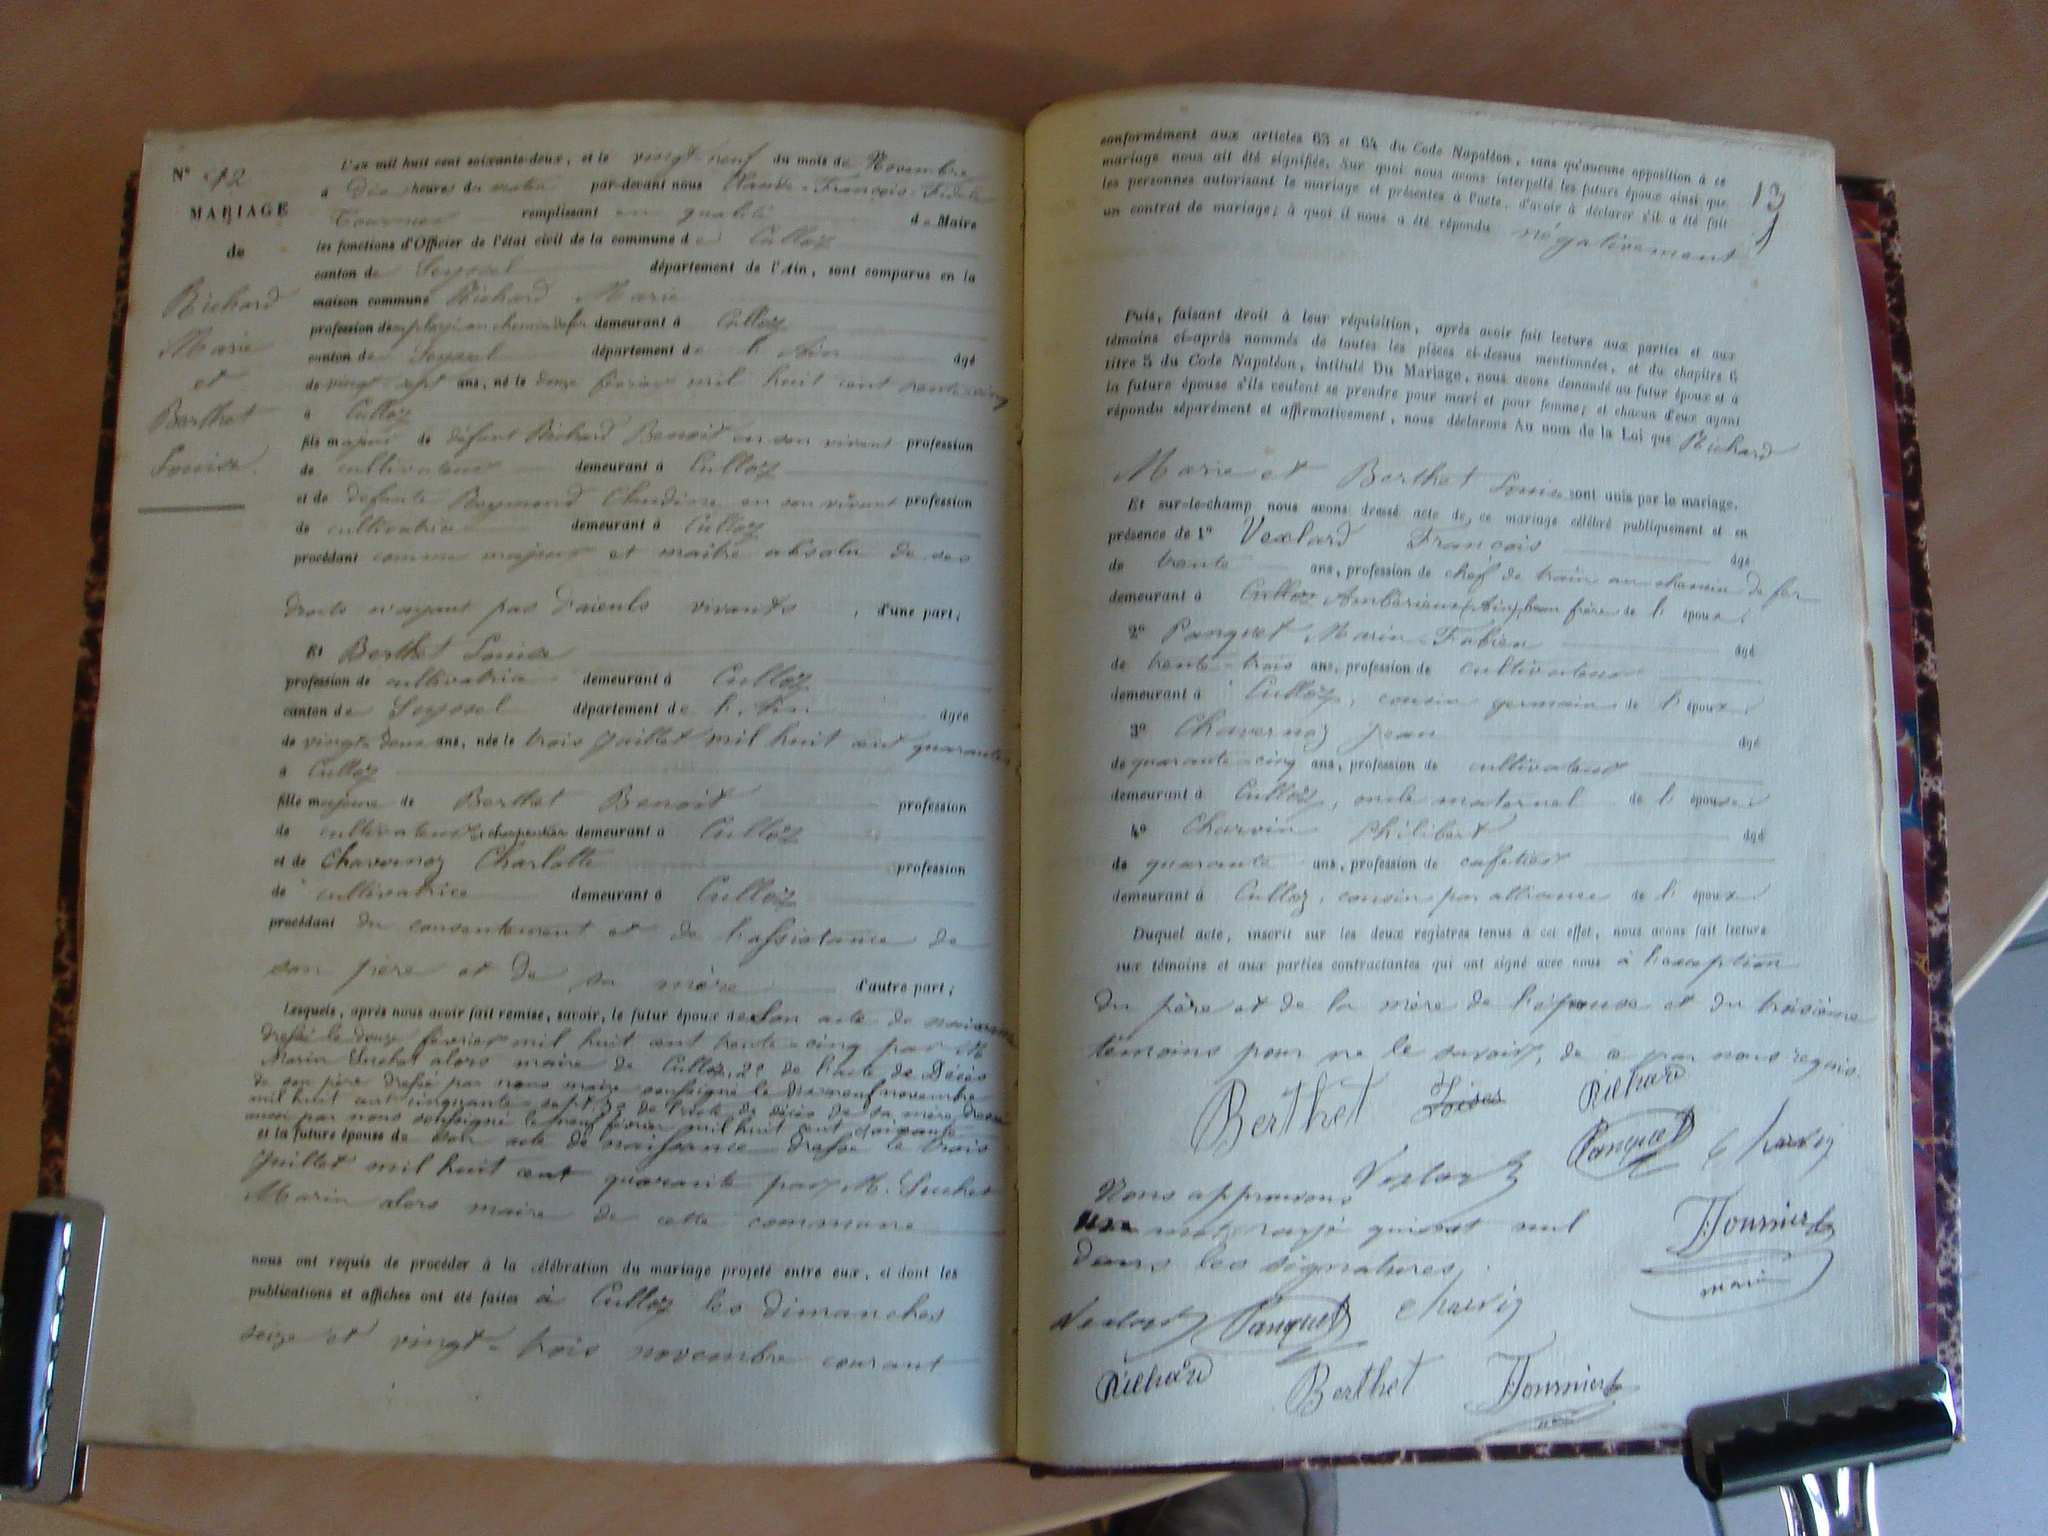 N° 12
MARIAGE
de
Richard
Marie
et
Berthet
Louise.
L'an mil huit cent soixante-deux, et le vingt-neuf du mois de Novembre
à Dix heures du matin par-devant nous Claude-François-Fidèle
Fournier remplissant en qualité de Maire
les fonctions d'Officier de l'état civil de la commune de Culloz
canton de Seyssel département de l'Ain, sont comparus en la
maison commune Richard Marie
profession de employé au chemin de fer demeurant à Culloz
canton de Seyssel département de l'Ain âgé
de vingt-sept ans, né le douze février mil huit cent trente-cinq
à Culloz
fils majeur de défunt Richard Benoit en son vivant profession
de cultivateur demeurant à Culloz
et de défunte Raymond Claudine en son vivant profession
de cultivatrice demeurant à Culloz
procédant comme majeur et maître absolu de ses
droits n'ayant pas d'aïeuls vivants, d'une part;
Et Berthet Louise
profession de cultivatrice demeurant à Culloz
canton de Seyssel département de l'Ain âgée
de vingt-deux ans, née le trois Juillet mil huit cent quarante
à Culloz
fille majeure de Berthet Benoit profession
de cultivateur et charpentier demeurant à Culloz
et de Chavernoz Charlotte profession
de cultivatrice demeurant à Culloz
procédant du consentement et de l'assistance de
son père et de sa mère d'autre part;
Lesquels, après nous avoir fait remise, savoir, le futur époux de son acte de naissance
dressé le douze février mil huit cent trente-cinq par M.
Marin Suchet alors maire de Culloz, 2° de l'acte de Décès
de son père dressé par nous maire soussigné le dix neuf novembre
mil huit cent cinquante-sept, 3° de l'acte de décès de sa mère, dressé
aussi par nous soussigné le neuf février mil huit cent soixante
et la future épouse de son acte de naissance dressé le trois
Juillet mil huit cent quarante par M. Suchet
Marin alors maire de cette commune
nous ont requis de procéder à la célébration du mariage projeté entre eux, et dont les
publications et affiches ont été faites à Culloz les dimanches
seize et vingt-trois novembre courant
13
conformément aux articles 63 et 64 du Code Napoléon, sans qu'aucune opposition à ce
mariage nous ait été signifiée. Sur quoi nous avons interpellé les futurs époux ainsi que
les personnes autorisant le mariage et présentes à l'acte, d'avoir à déclarer s'il a été fait
un contrat de mariage; à quoi il nous a été répondu négativement
Puis, faisant droit à leur réquisition, après avoir fait lecture aux parties et aux
témoins ci-après nommés de toutes les pièces ci-dessus mentionnées, et du chapitre 6
titre 5 du Code Napoléon, intitulé Du Mariage, nous avons demandé au futur époux et à
la future épouse s'ils veulent se prendre pour mari et pour femme; et chacun d'eux ayant
répondu séparément et affirmativement, nous déclarons Au nom de la Loi que Richard
Marie et Berthet Louise sont unis par le mariage.
Et sur-le-champ nous avons dressé acte de ce mariage célébré publiquement et en
présence de 1° Vexlard François âgé
de trente ans, profession de chef de train au chemin de fer
demeurant à Culloz Ambérieux (Ain), beau frère de l'époux.
2° Panquet Marin-Fabien âgé
de trente-trois ans, profession de cultivateur
demeurant à Culloz, cousin germain de l'époux.
3° Chavernoz Jean âgé
de quarante-cinq ans, profession de cultivateur
demeurant à Culloz, oncle maternel de l'épouse.
4° Charvin Philibert âgé
de quarante ans, profession de cafetier
demeurant à Culloz, cousin par alliance de l'époux.
Duquel acte, inscrit sur les deux registres tenus à cet effet, nous avons fait lecture
aux témoins et aux parties contractantes qui ont signé avec nous à l'exception
du père et de la mère de l'épouse et du troisième
témoins pour ne le savoir, de ce par nous requis.
Berthet Richard
Panquet Charvin
Vexlard
Nous approuvons
un mot rayé qui est nul
dans les signatures.
Fournier
maire
Vexlard Panquet Charvin
Richard Berthet Fournier